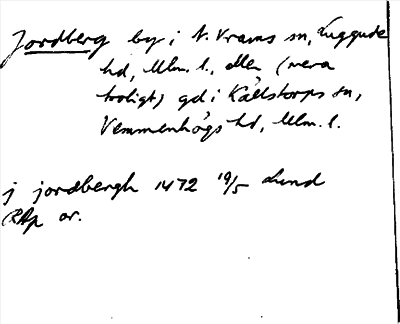 Jordberg by i N. Vrams sn, Luggude
hd, Mlm. l., eller (mera
troligt) gd i Källstorps sn,
Vemmenhögs hd, Mlm. l.
j jordbergh 1472 19/5 Lund
RAp or.